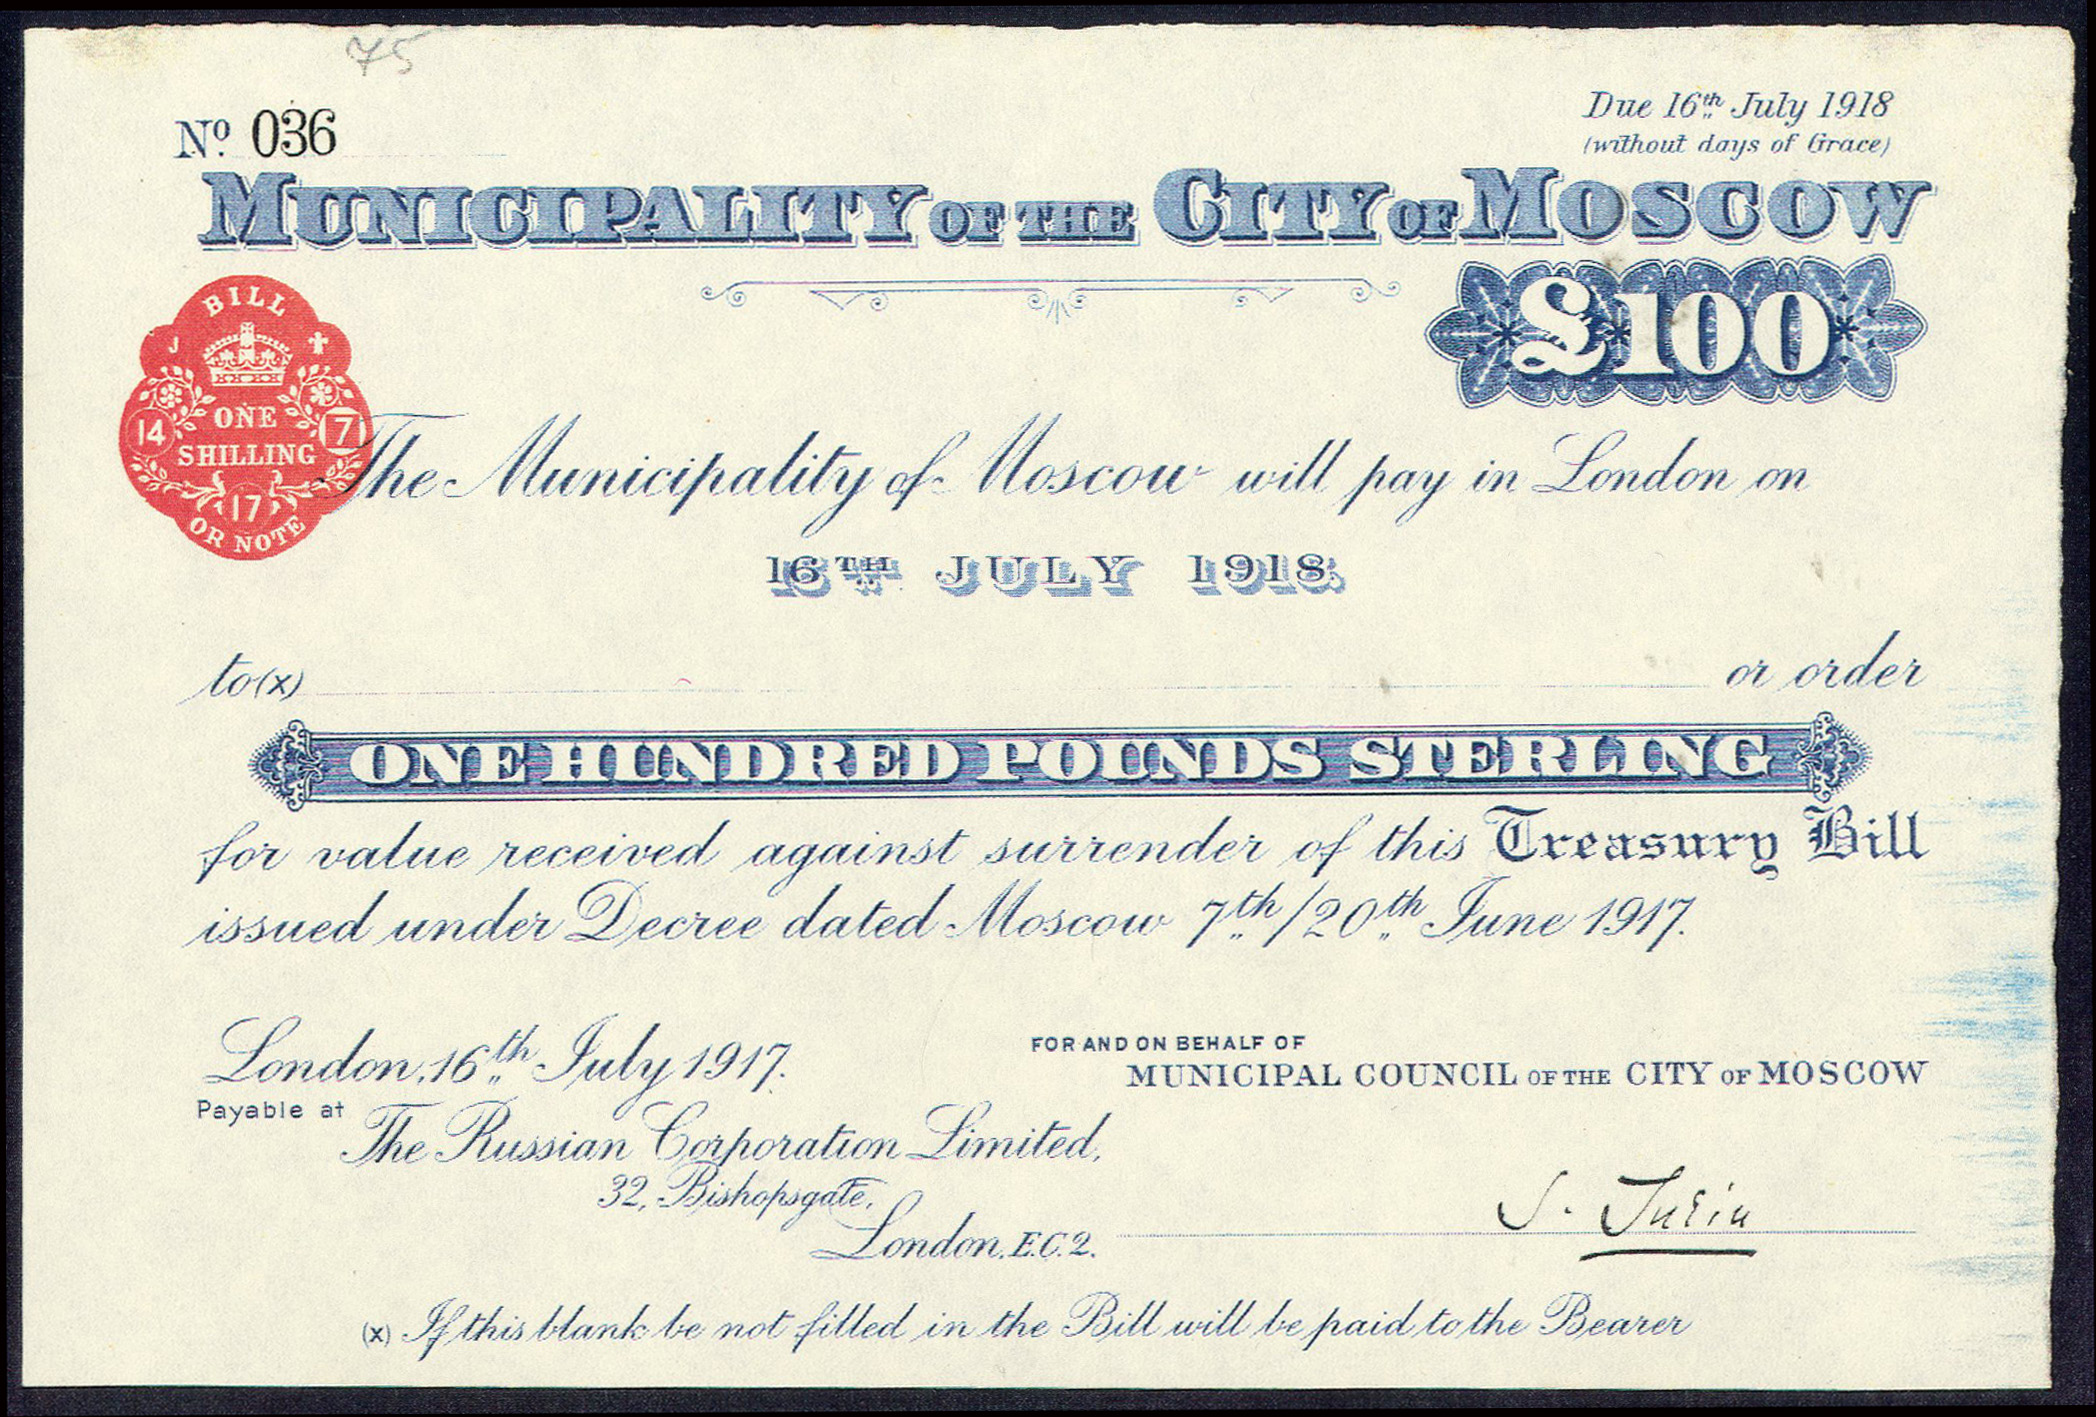 75
Nº 036
Due 16th July 1918
(without days of Grace)
MUNICIPALITY OF THE CITY OF MOSCOW
£100
BILL
J
ONE
14
7
SHILLING
17
OR NOTE
The Municipality of Moscow will pay in London on
16TH JULY 1918.
to (x) or order
ONE HUNDRED POUNDS STERLING
for value received against surrender of this Treasury Bill
issued under Decree dated Moscow 7th/20th June 1917.
London, 16th July 1917.
FOR AND ON BEHALF OF
MUNICIPAL COUNCIL OF THE CITY OF MOSCOW
Payable at
The Russian Corporation Limited,
32, Bishopsgate,
London, E.C.2.
(x) If this blank be not filled in the Bill will be paid to the Bearer